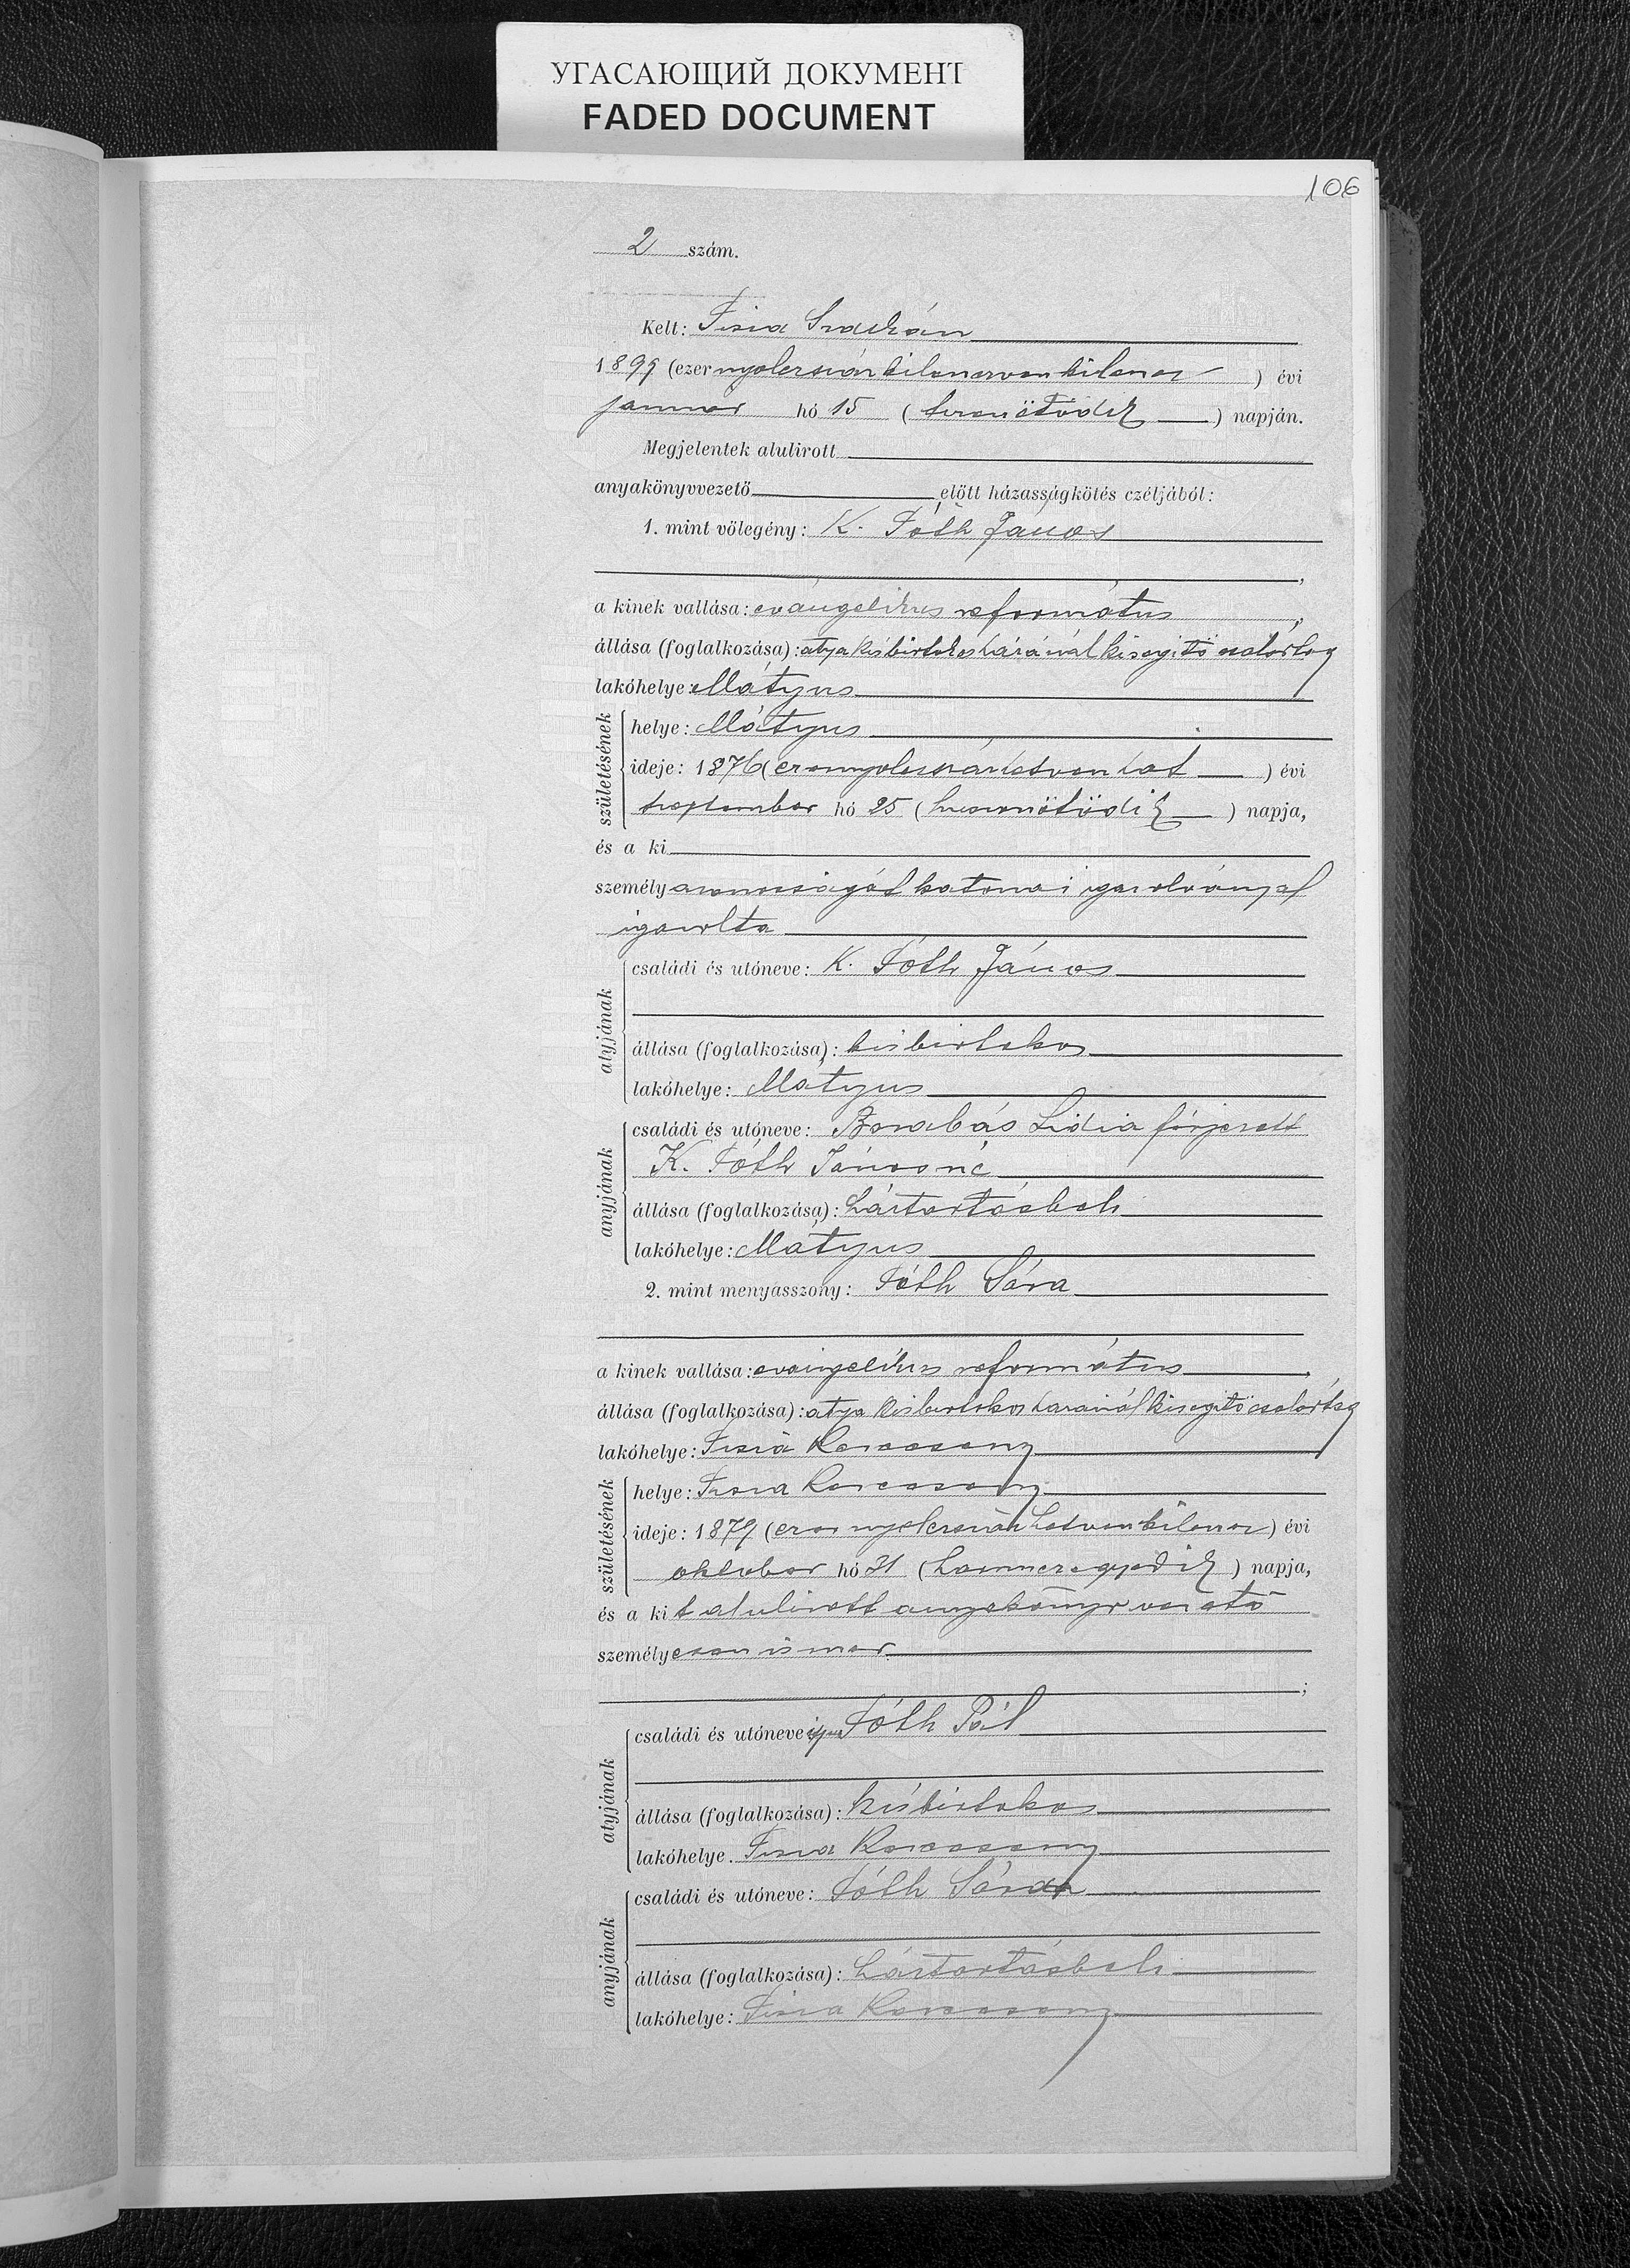 УГАСАЮЩИЙ ДОКУМЕНТ
FADED DOCUMENT
106
2 szám.
Kelt: Tisza
1899 (ezernyolczszázkilenczvenkilencz) évi
januar hó 15 (tizenötödik) napján.
Megjelentek alulirott
anyakönyvvezető előtt házasságkötés czéljából:
1. mint vőlegény: K. Tóth János
a kinek vallása: evángelikus református,
állása (foglalkozása): atya kisbirtokos házánál kisegitő családtag
lakóhelye: Mátyus
születésének
helye: Mátyus
ideje: 1876 (ezernyolczszázhetvenhat) évi
szeptember hó 25 (huszonötödik) napja,
és a ki
személyazonosságát katonai igazolványnyal
igazolta
atyjának
családi és utóneve: K. Tóth János
állása (foglalkozása): kisbirtokos
lakóhelye: Mátyus
anyjának
családi és utóneve: Barabás Lidia férjezett
K. Tóth Jánosné
állása (foglalkozása): háztartásbeli
lakóhelye: Mátyus
2. mint menyasszony: Tóth Sára
a kinek vallása: evángelikus református
állása (foglalkozása): atya kisbirtokos házánál kisegitő családtag
lakóhelye: Tisza Kerecseny
születésének
helye: Tisza Kerecseny
ideje: 1879 (ezernyolczszázhetvenkilencz) évi
oktober hó 31 (harminczegyedik) napja,
és a kit alulirott anyakönyvvezető
személyesen ismer
;
atyjának
családi és utóneve: Tóth Pál
állása (foglalkozása): kisbirtokos
lakóhelye. Tisza Kerecseny
anyjának
családi és utóneve: Tóth Sára
állása (foglalkozása): háztartásbeli
lakóhelye: Tisza Kerecseny